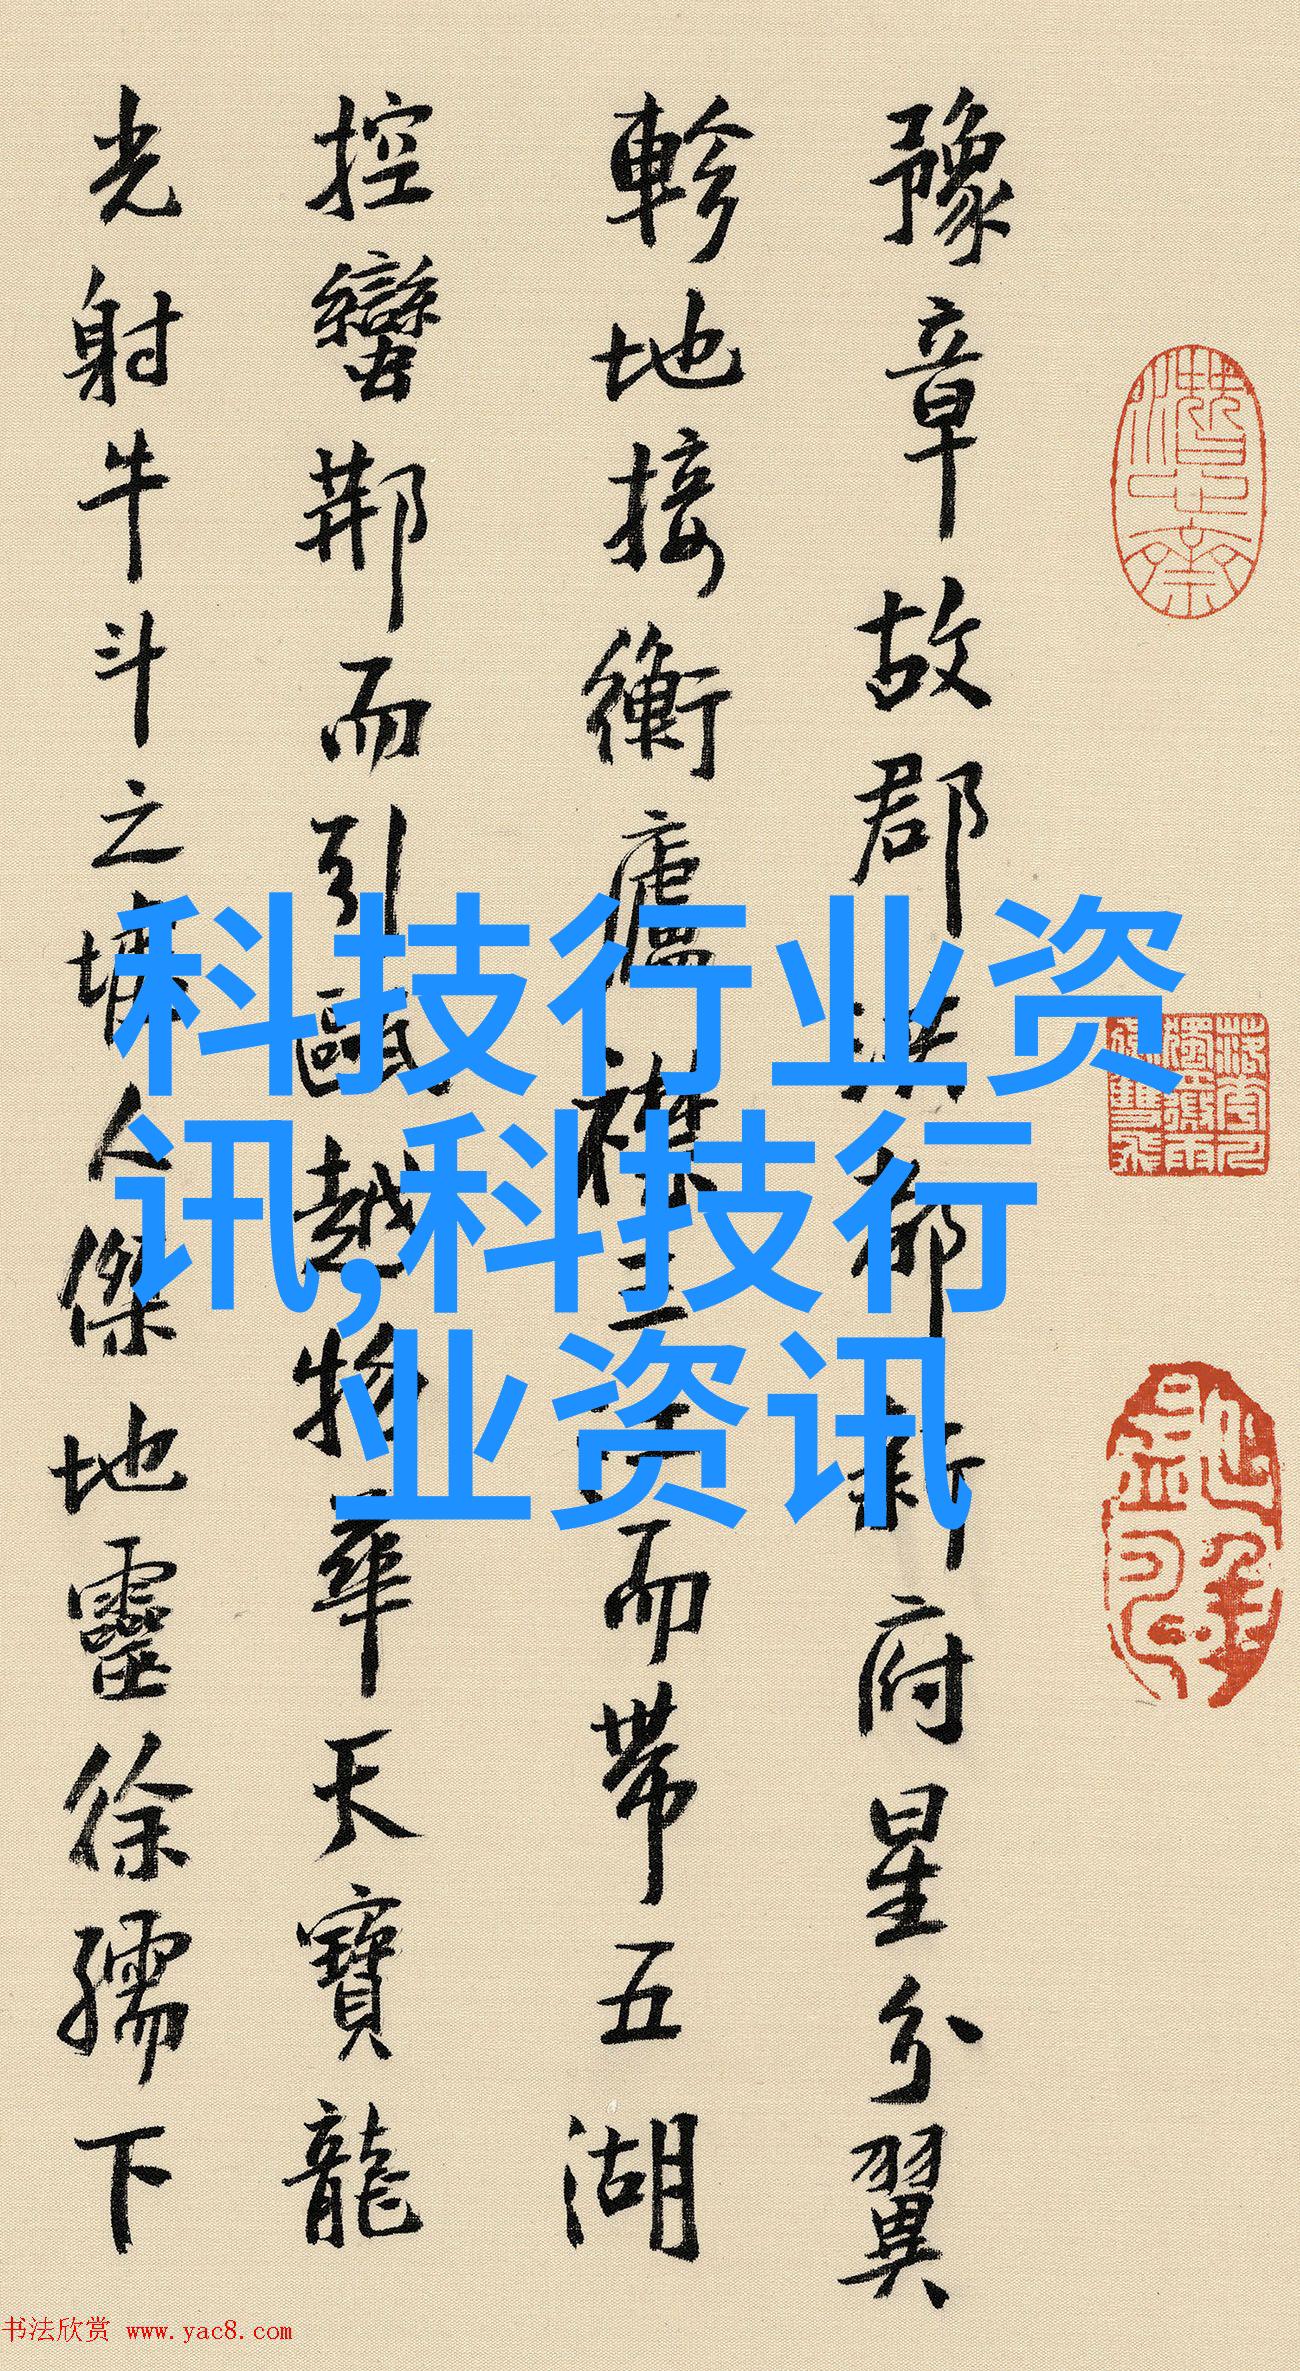 豫章故郡洪都新府星分翼
軫地接衡廬襟三江而帶五湖
控蠻荆而引甌越物華天寶龍
光射牛斗之墟人傑地靈徐孺下
科技行业资
讯,科技行
业资讯
书法欣赏 www.yac8.com